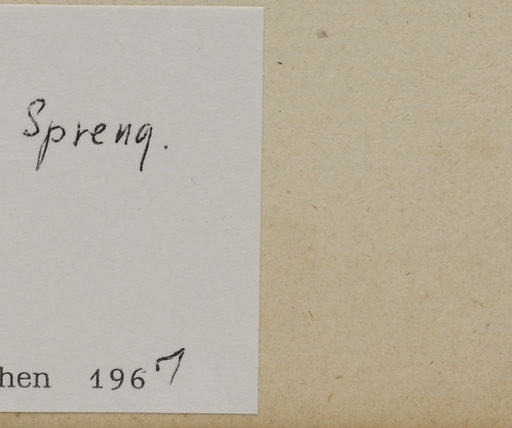 Spreng.
hen 1967